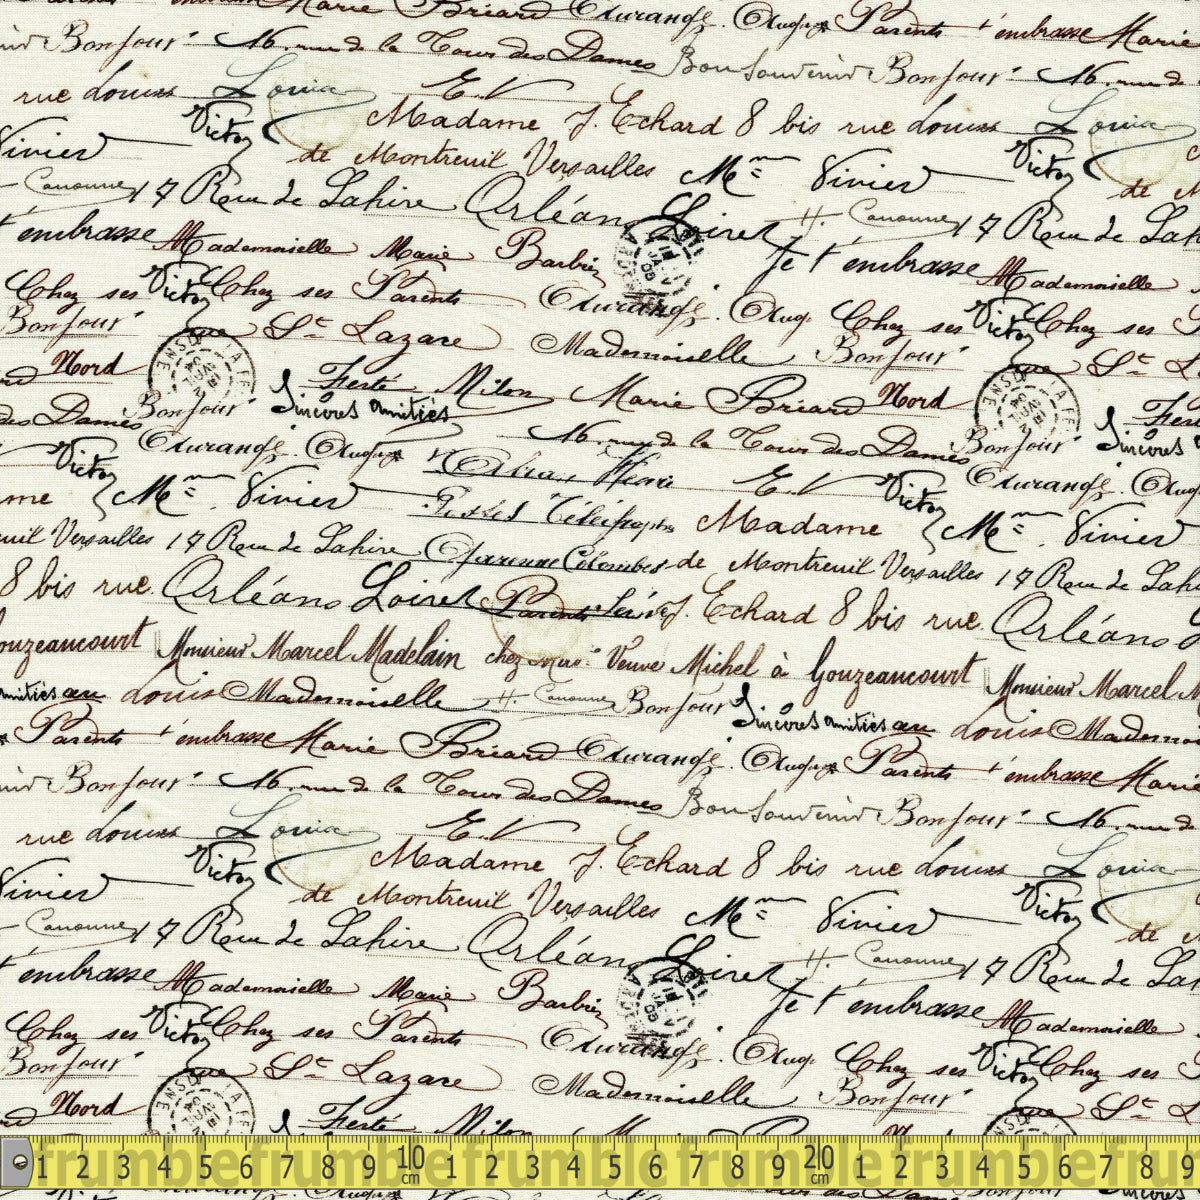 Marie Briard Oxurangé. Parents t'embrasse Marie
Bonjour 16. rue de la Tour des Dames Bon Souvenir Bonjour 16. rue de
rue Louis Louia E.V
Victor Madame J. Echard 8 bis rue Louis Louia
Vivier de Montreuil Versailles Mme Vivier Victor
Canonne 17 Rue de Lahire Orléans Loiret H. Canonne 17 Rue de Lah
t'embrasse Mademoiselle Marie Barbier Je t'embrasse Mademoiselle
Chez ses Victor Chez ses Parents Oxurangé. Chez ses Victor Chez ses
Bonjour rue St Lazare Mademoiselle Bonjour rue St L
Nord Festé Milon Marie Briard Nord
des Dames Bonjour Sincères amitiés Bonjour Sincères
Oxurangé. 16. rue de la Tour des Dames Oxurangé.
Victor Henri E.V Victor
me Mme Vivier Postes Télégraphes Madame Mme Vivier
uil Versailles 17 Rue de Lahire Garenne Colombes de Montreuil Versailles 17 Rue de Lah
8 bis rue Orléans Loiret Parents J. Echard 8 bis rue Orléans
ouzeaucourt Monsieur Marcel Madelain chez Mme Veuve Michel à Gouzeaucourt Monsieur Marcel M
amitiés au Louis Mademoiselle H. Canonne Bonjour Sincères amitiés au Louis Mademoi
Parents t'embrasse Marie Briard Oxurangé. Parents t'embrasse Marie
Bonjour 16. rue de la Tour des Dames Bon Souvenir Bonjour 16. rue de
rue Louis Louia E.V
Victor Madame J. Echard 8 bis rue Louis Louia
Vivier de Montreuil Versailles Mme Vivier Victor
Canonne 17 Rue de Lahire Orléans Loiret H. Canonne 17 Rue de Lah
t'embrasse Mademoiselle Marie Barbier Je t'embrasse Mademoiselle
Chez ses Victor Chez ses Parents Oxurangé. Chez ses Victor Chez ses
Bonjour rue St Lazare Mademoiselle Bonjour rue St L
Nord Festé Milon
frumble frumble frumble frumble frumble fru
1 2 3 4 5 6 7 8 9 10 cm 1 2 3 4 5 6 7 8 9 20 cm 1 2 3 4 5 6 7 8 9